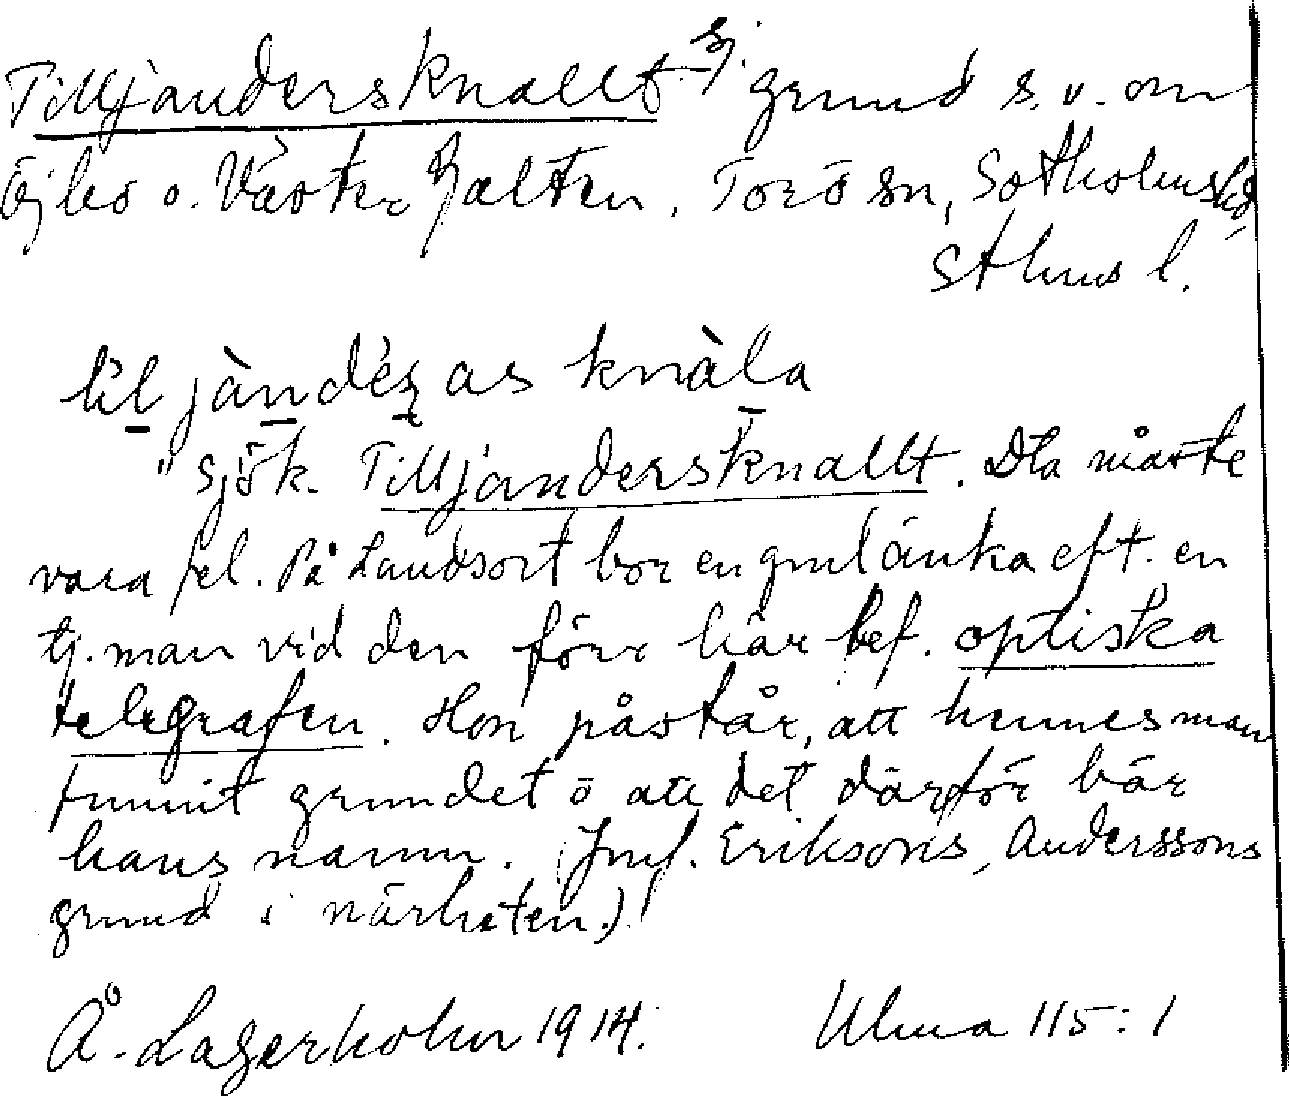 Tilljandersknallt grund s.v. om
Öjbo o. Väster Galten, Torö sn, Sotholms hd
Sthms l.
lil jàndér as knàla
"Sjök. Tilljandersknallt. Dta måste
vara fel. På Landsort bor en gml änka eft. en
tj.man vid den förr här bef. optiska
telegrafen. Hon påstår, att hennes man
funnit grundet o att det därför bär
hans namn. (Jmf. Eriksons, Anderssons
grund i närheten.)!
Å. Lagerholm 1914. Ulua 115:1